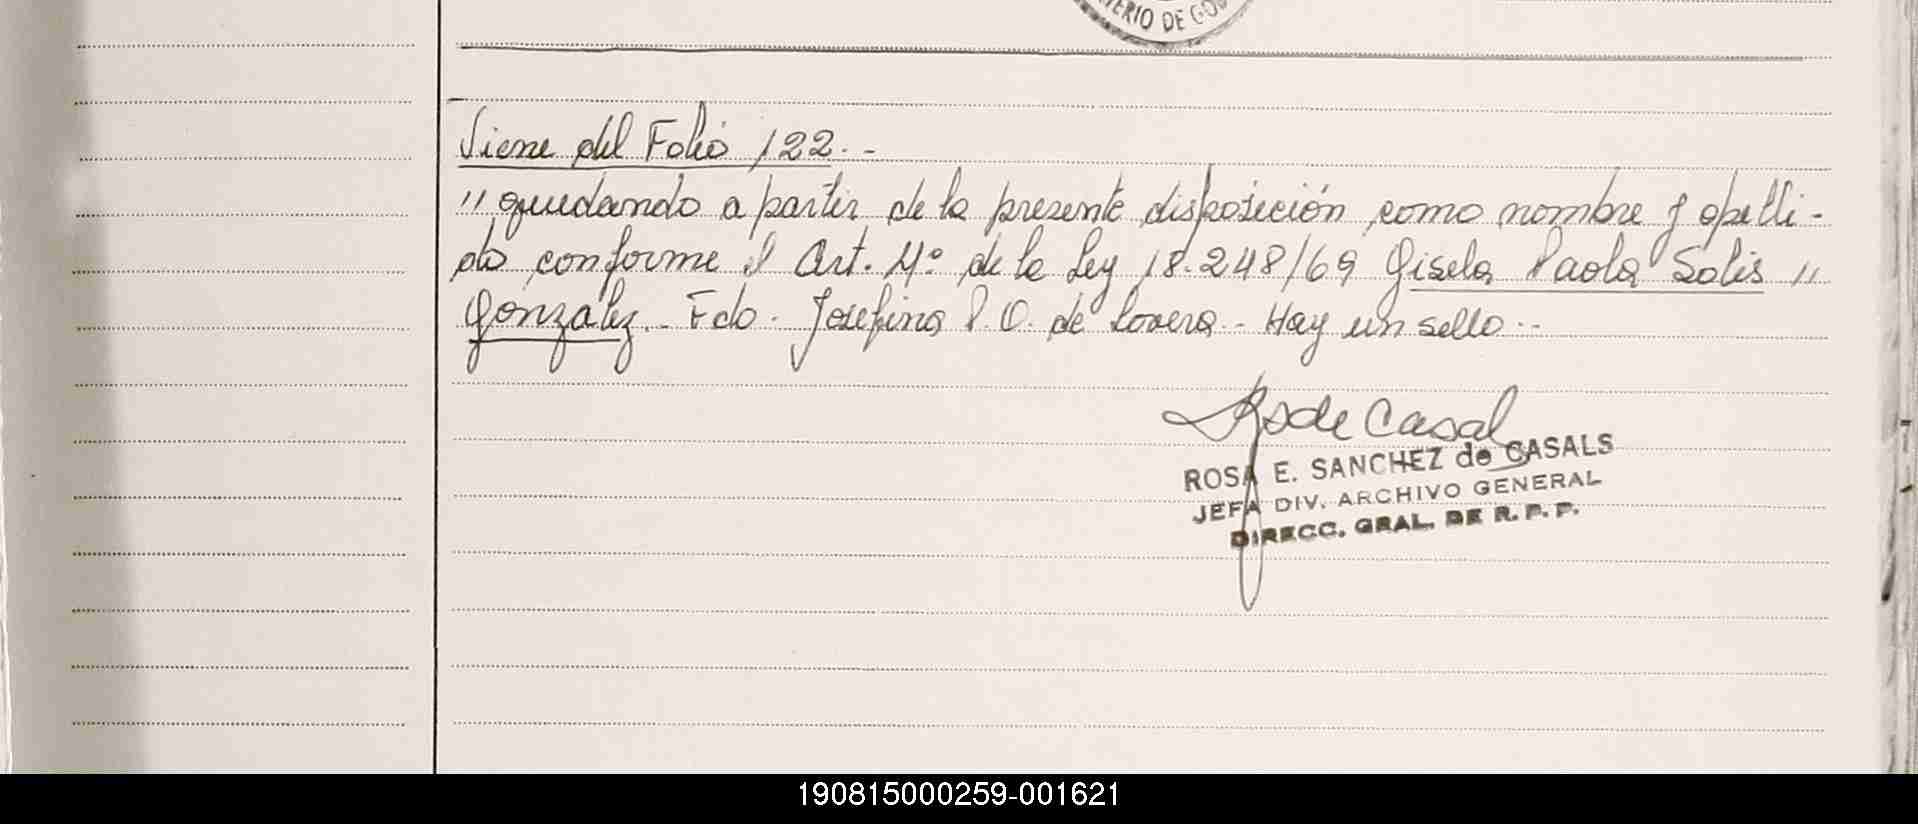 ERIO DE GOB
Viene del Folio 122.-
" quedando a partir de la presente disposición como nombre y apelli-
do conforme el Art. 4º de la Ley 18.248/69 Gisela Paola Solis "
Gonzalez.- Fdo. Josefina P. O. de Lovera.- Hay un sello.-
R S de Casal
ROSA E. SANCHEZ de CASALS
JEFA DIV. ARCHIVO GENERAL
DIRECC. GRAL. DE R. P. P.
190815000259-001621